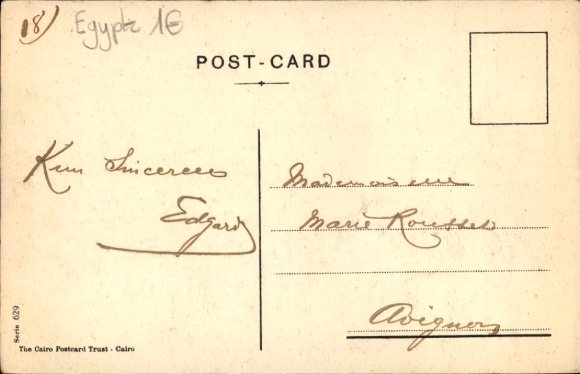 18)
Egypte 1€
POST-CARD
Sincerees
Edgard
Mademoiselle
Marie Rousset
Avignon
Serie 629
The Cairo Postcard Trust - Cairo